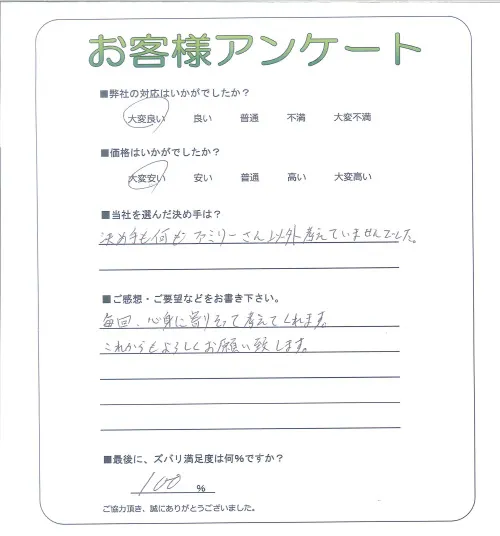 お客様アンケート
■弊社の対応はいかがでしたか？
大変良い 良い 普通 不満 大変不満
■価格はいかがでしたか？
大変安い 安い 普通 高い 大変高い
■当社を選んだ決め手は？
決め手も何も ファミリーさん以外考えていませんでした。
■ご感想・ご要望などをお書き下さい。
毎回、心身に寄りそって考えてくれます。
これからもよろしくお願い致します。
■最後に、ズバリ満足度は何％ですか？
100 ％
ご協力頂き、誠にありがとうございました。